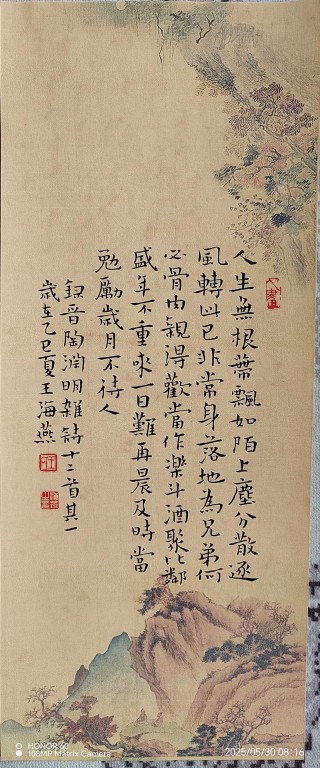 人生無根蒂飄如陌上塵分散逐
風轉此已非常身落地為兄弟何
必骨肉親得歡當作樂斗酒聚比鄰
盛年不重來一日難再晨及時當
勉勵歲月不待人
錄晉陶淵明雜詩十二首其一
歲在乙巳夏王海燕
HONOR 60
108MP Matrix Camera
2025/05/30 08:16